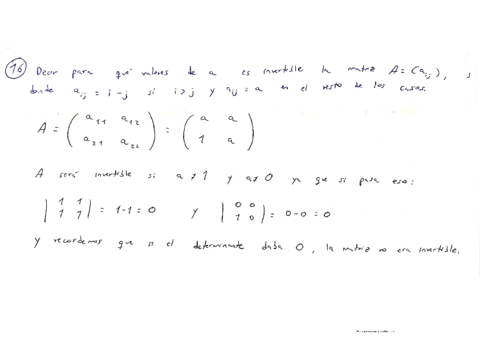 16 Decir para qué valores de a es invertible la matriz A = (aij),
donde aij = i - j si i > j y aij = a en el resto de los casos.
A = ( a11 a12 ; a21 a22 ) = ( a a ; 1 a )
A será invertible si a ≠ 1 y a ≠ 0 ya que si pasa eso:
| 1 1 ; 1 1 | = 1-1 = 0 y | 0 0 ; 1 0 | = 0-0 = 0
y recordemos que si el determinante daba 0, la matriz no era invertible.